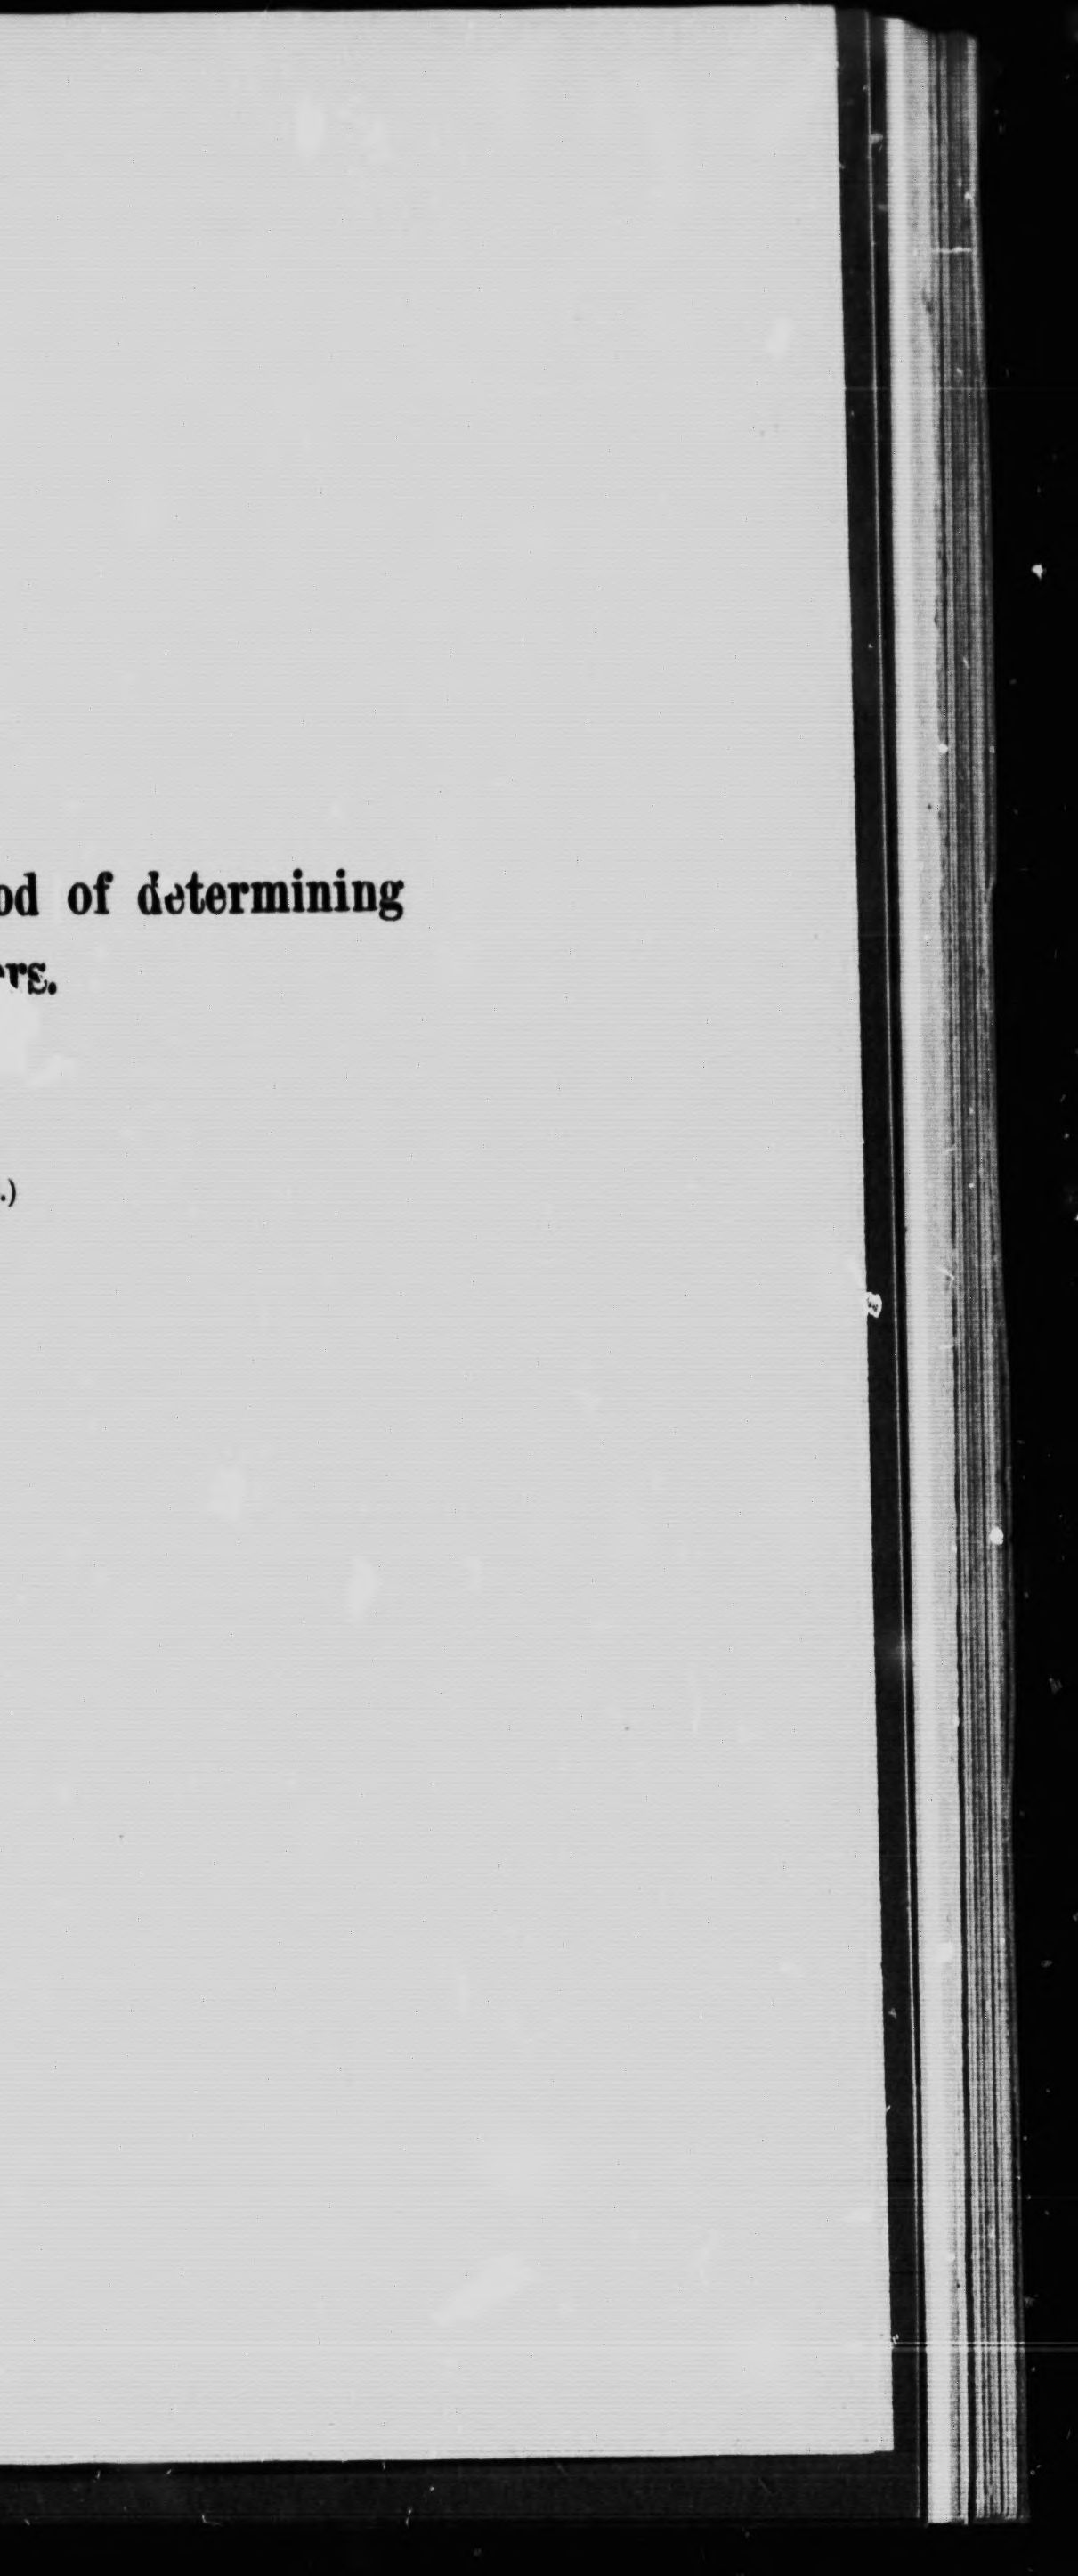 od of determining
ers.
.)